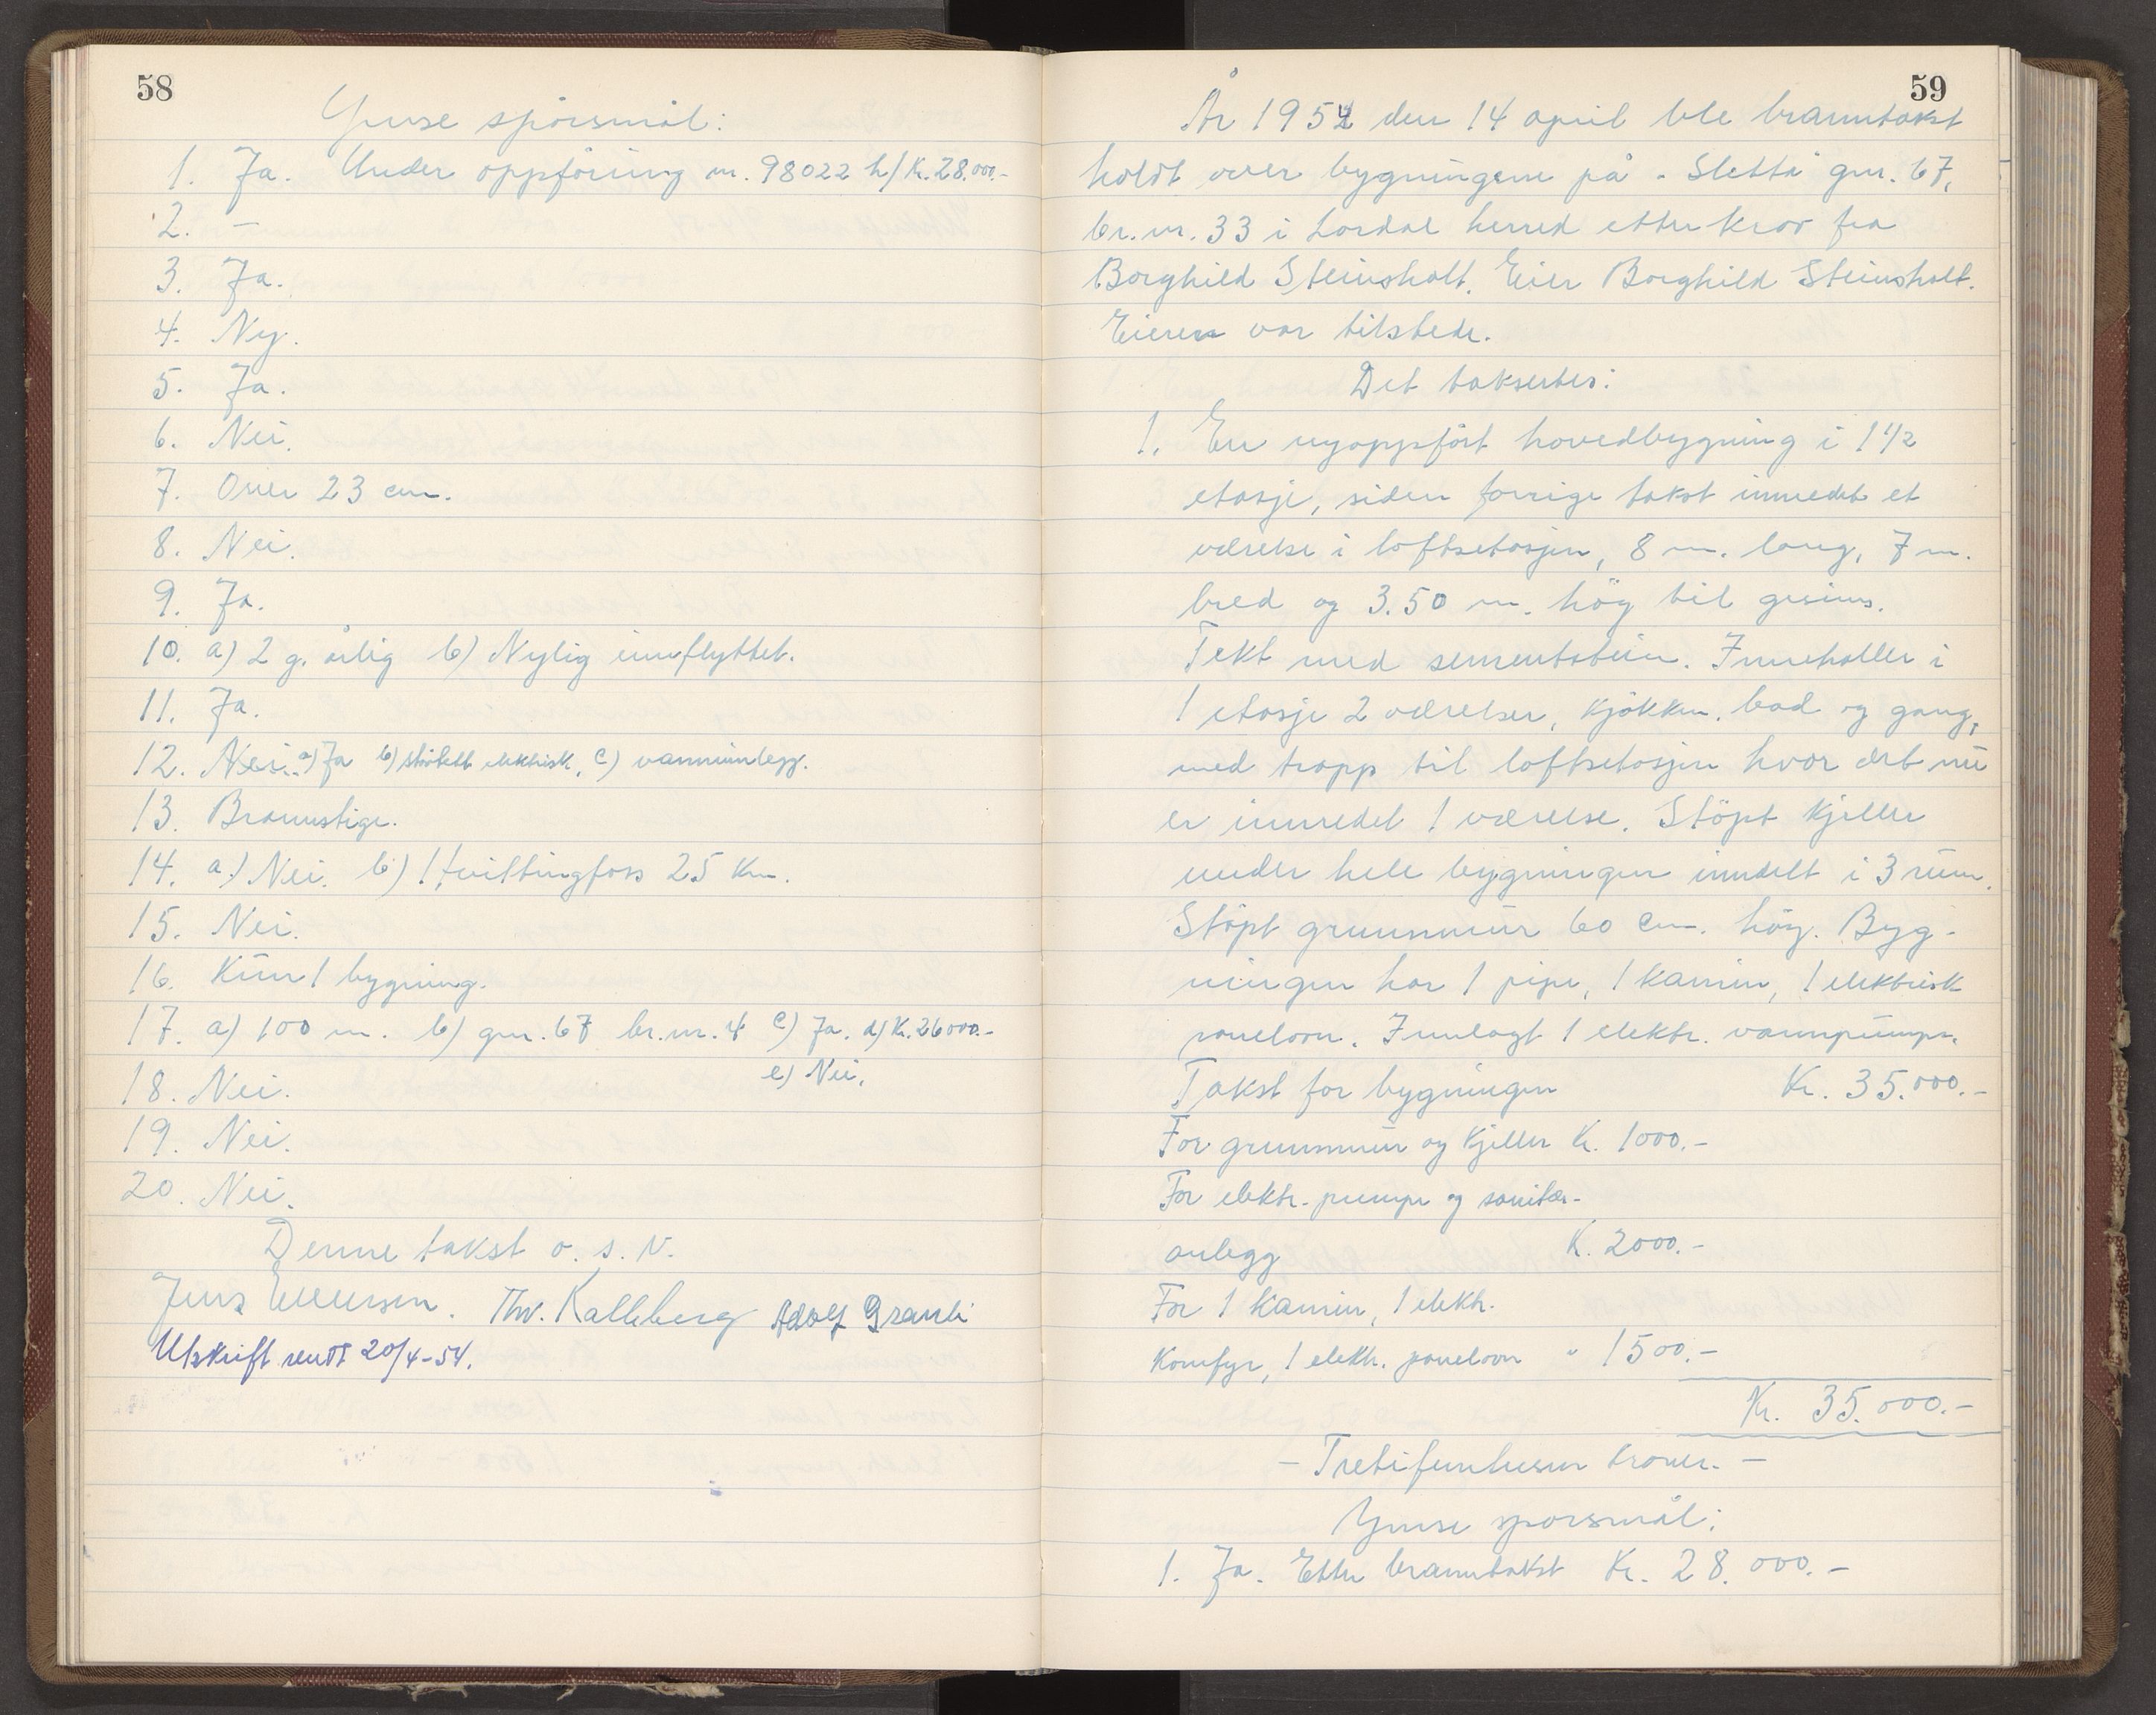 58
Ymse spörsmål:
1. Ja. Under oppföring nr. 98022 h/ K. 28.000.-
2. -
3. Ja.
4. Ny.
5. Ja.
6. Nei.
7. Over 23 cm.
8. Nei.
9. Ja.
10. a) 2 g. årlig b) Nylig innflyttet.
11. Ja.
12. Nei. a) Ja b) elektrisk, c) vanninnlegg.
13. Brannstige.
14. a.) Nei. b) Hvittingfoss 25 Km.
15. Nei.
16. Kun 1 bygning.
17. a) 100 m. b) gnr. 67 br.nr. 4 c) Ja. d) K. 26000.-
e) Nei.
18. Nei.
19. Nei.
20. Nei.
Denne takst o. s. v.
Jens Ellersen. Thv. Kalleberg Adolf Granli
Utskrift sendt 20/4-54.
59
År 1954 den 14 april ble branntakst
holdt over bygningene på "Sletta" gnr. 67,
br.nr. 33 i Lardal herred etter krav fra
Borghild Steinsholt. Eier Borghild Steinsholt.
Eieren var tilstede.
Det taksertes:
1. En nyoppfört hovedbygning i 1 1/2
etasje, siden forrige takst innredet et
værelse i loftsetasjen, 8 m. lang, 7 m.
bred og 3.50 m. höy til gesims.
Tekt med sementstein. Inneholder i
1 etasje 2 værelser, kjökken, bad og gang,
med trapp til loftsetasjen hvor det nu
er innredet 1 værelse. Stöpt kjeller
under hele bygningen inndelt i 3 rum.
Stöpt grunnmur 60 cm. höy. Byg-
ningen har 1 pipe, 1 kamin, 1 elektrisk
panelovn. Innlagt 1 elektr. vannpumpe.
Takst for bygningen Kr. 35.000.-
For grunnmur og kjeller K. 1000.-
For elektr. pumpe og sanitær-
anlegg K. 2000.-
For 1 kamin, 1 elektr.
komfyr, 1 elektr. panelovn " 1500.-
Kr. 35.000.-
- Trettifemtusen kroner. -
Ymse spörsmål:
1. Ja. Etter branntakst Kr. 28.000.-